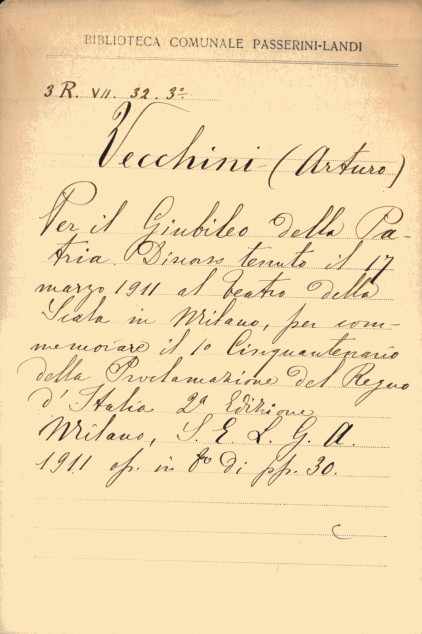 BIBLIOTECA COMUNALE PASSERINI-LANDI
3 R. VII. 32. 3º
Vecchini (Arturo)
Per il Giubileo della Pa-
tria. Discorso tenuto il 17
marzo 1911 al Teatro della
Scala in Milano, per com-
memorare il 1º Cinquantenario
della Proclamazione del Regno
d'Italia 2ª Edizione
Milano, S. E. L. G. A.
1911 op. in 8º di pp. 30.